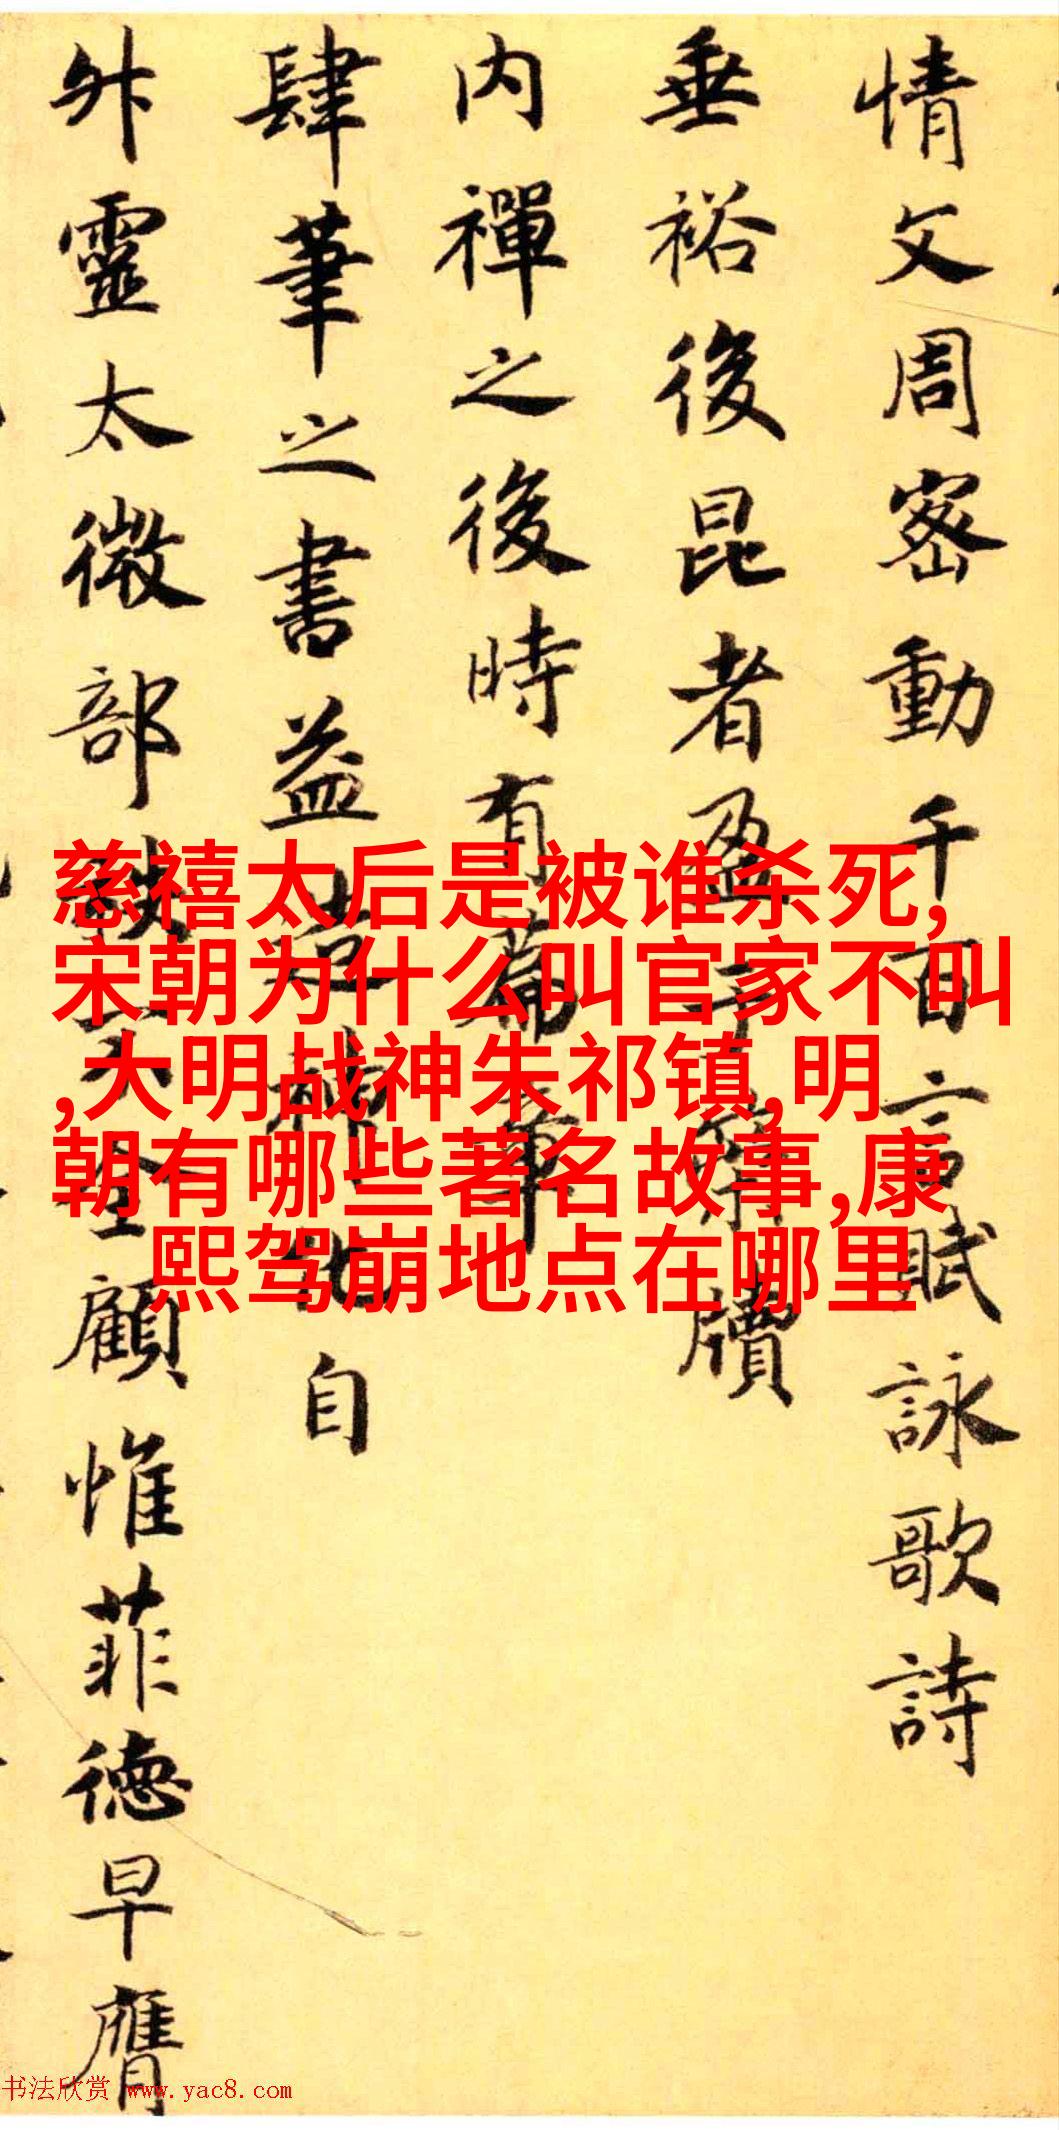 情文周密動千百言賦詠歌詩
垂裕後昆者盈于簡牘
内禪之後時有篇章
肆筆之書益超神化自
外靈太微部
顧惟菲德早膺
慈禧太后是被谁杀死,
宋朝为什么叫官家不叫
,大明战神朱祁镇,明
朝有哪些著名故事,康
熙驾崩地点在哪里
书法欣赏 www.yac8.com